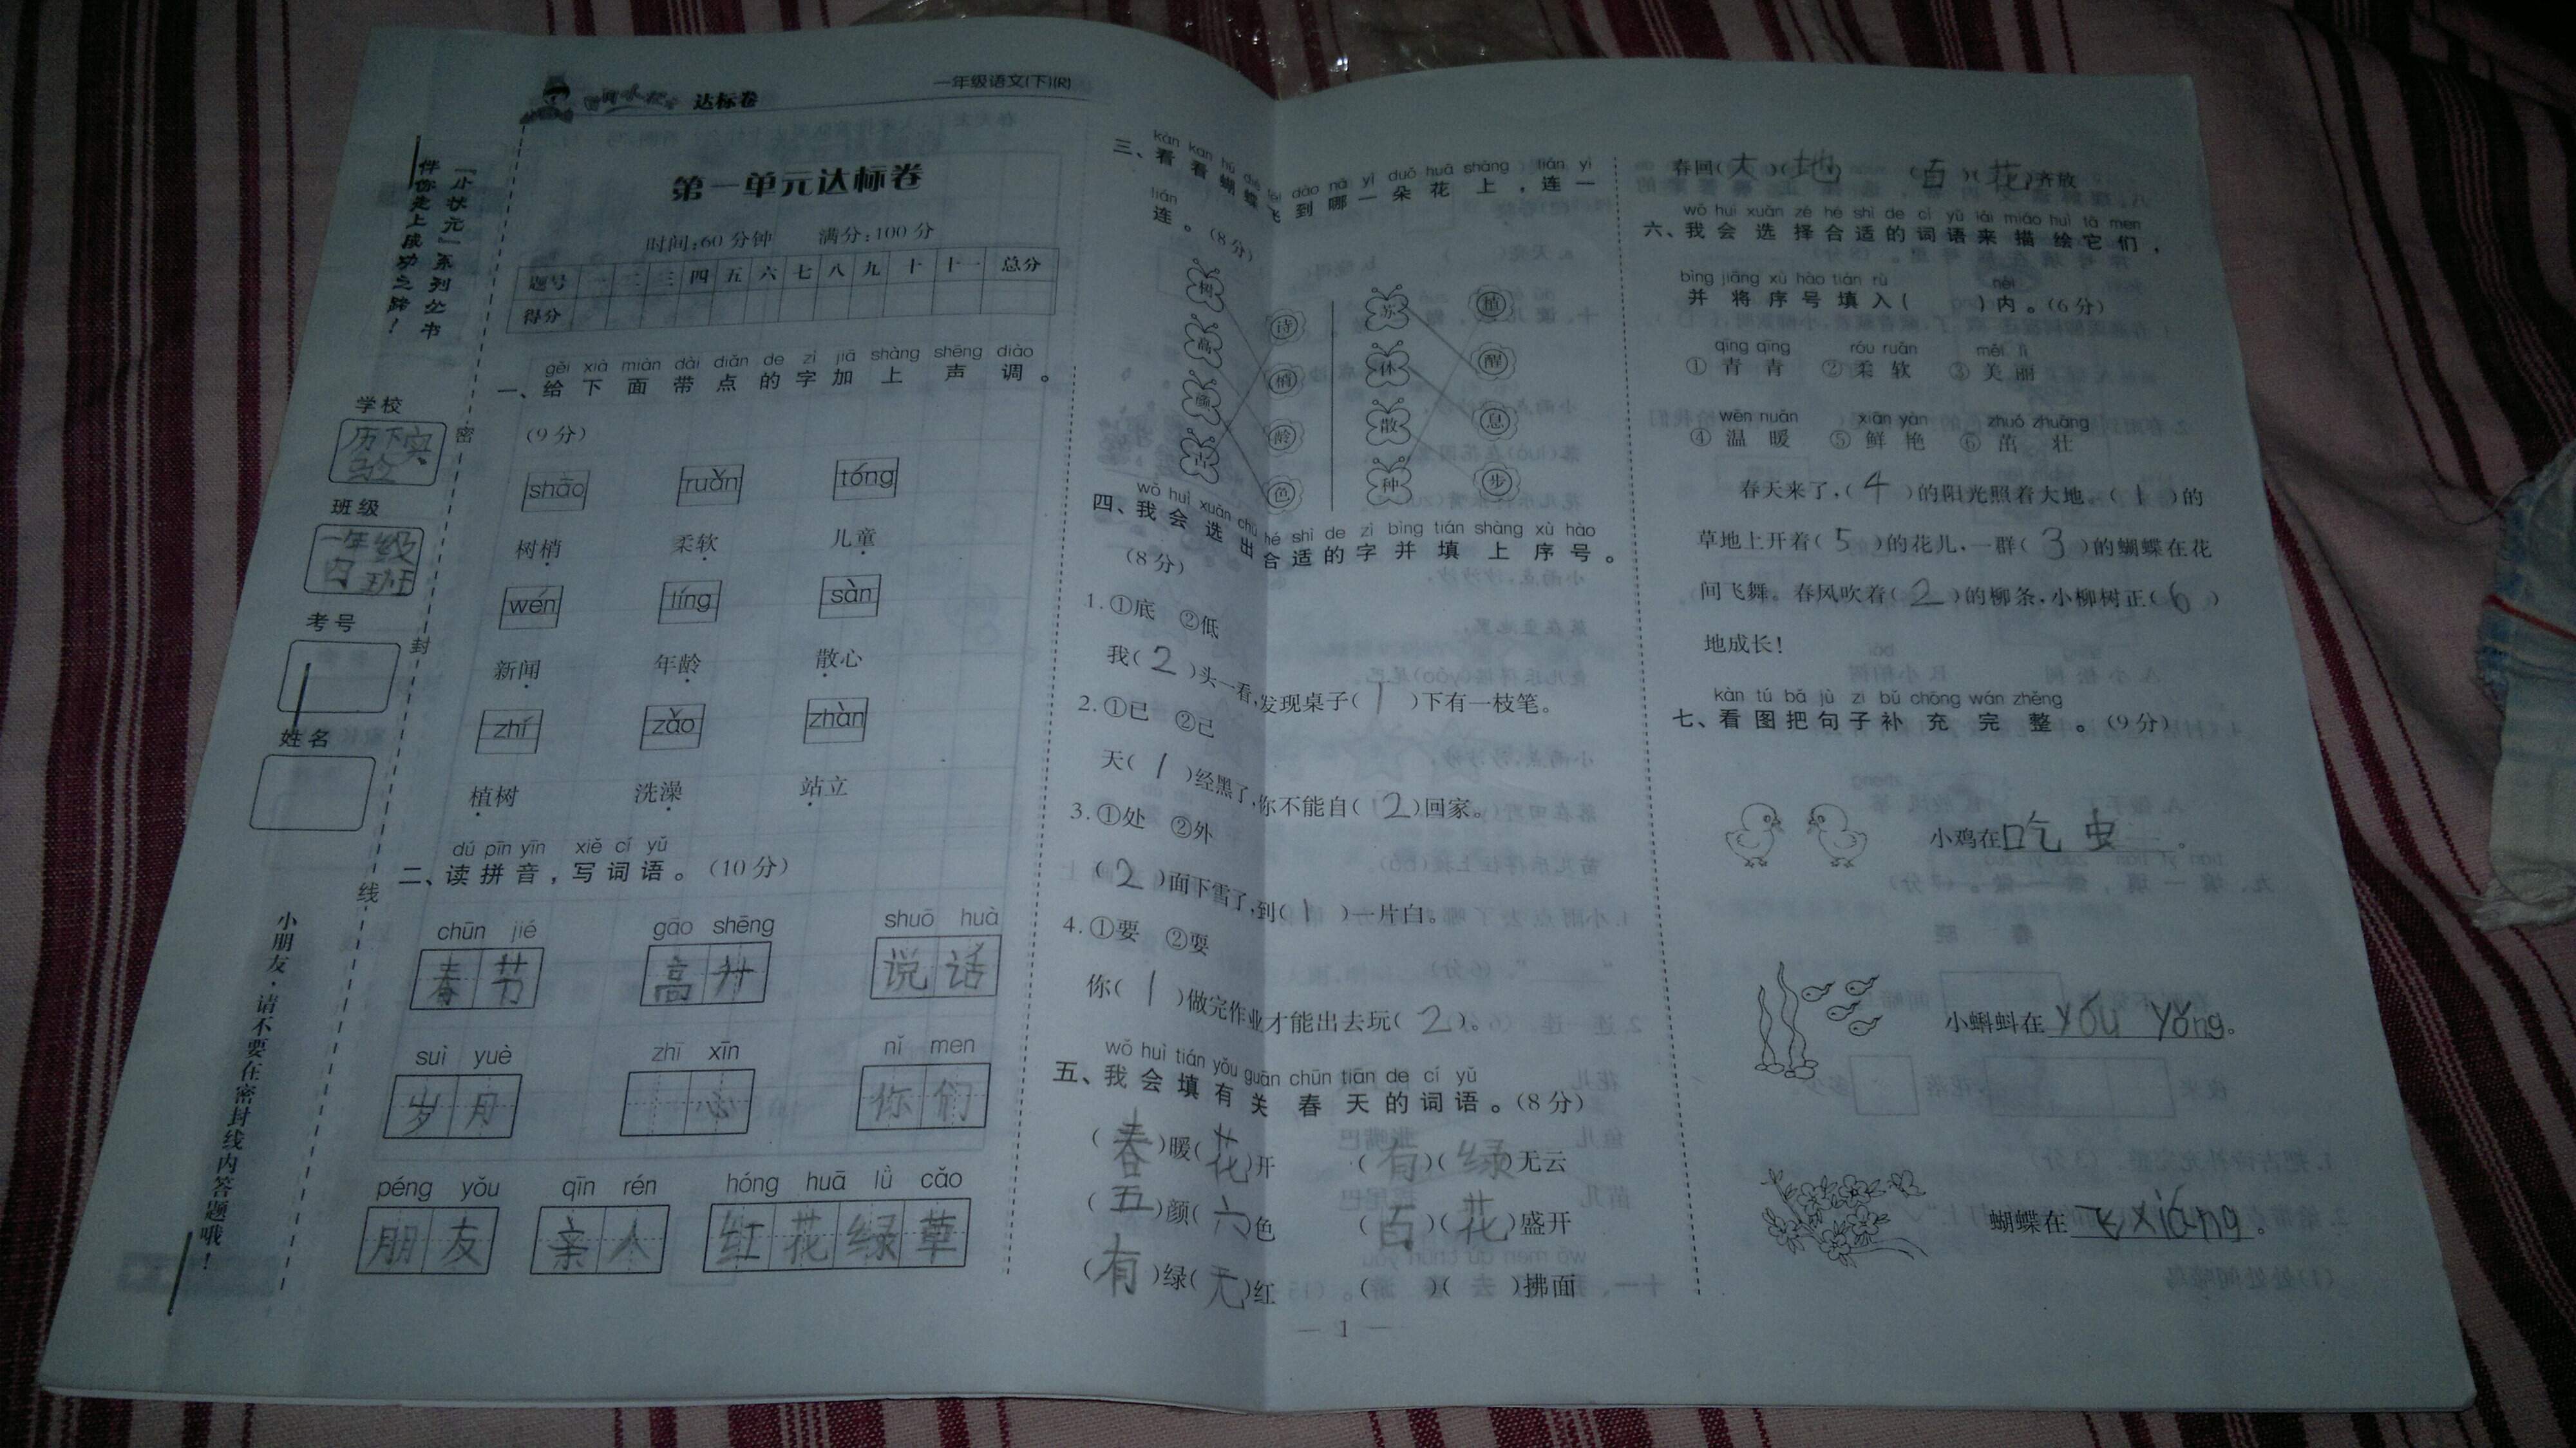 达标卷
一年级语文(下)(R)
「小状元」系列丛书
伴你走上成功之路！
学校
历下实
验
班级
一年级
四班
考号
姓名
密
封
线
小朋友，请不要在密封线内答题哦！
第一单元达标卷
时间：60分钟 满分：100分
题号 一 二 三 四 五 六 七 八 九 十 十一 总分
得分
gěi xià miàn dài diǎn de zì jiā shàng shēng diào
一、给下面带点的字加上声调。
(9分)
shāo ruǎn tóng
树梢 柔软 儿童
wén líng sàn
新闻 年龄 散心
zhí zǎo zhàn
植树 洗澡 站立
dú pīn yīn xiě cí yǔ
二、读拼音，写词语。(10分)
chūn jié gāo shēng shuō huà
春节 高升 说话
suì yuè zhī xīn nǐ men
岁月 心 你们
péng yǒu qīn rén hóng huā lǜ cǎo
朋友 亲人 红花绿草
kàn kan hú dié fēi dào nǎ yì duǒ huā shàng lián yì
三、看看蝴蝶飞到哪一朵花上，连一
lián
连。(8分)
树 诗 苏 植
高 梢 休 醒
颜 龄 散 息
色 种 步
wǒ huì xuǎn chū hé shì de zì bìng tián shàng xù hào
四、我会选出合适的字并填上序号。
(8分)
1. ①底 ②低
我( 2 )头一看，发现桌子( 1 )下有一枝笔。
2. ①已 ②己
天( 1 )经黑了，你不能自( 2 )回家。
3. ①处 ②外
( 2 )面下雪了，到( 1 )一片白。
4. ①要 ②耍
你( 1 )做完作业才能出去玩( 2 )。
wǒ huì tián yǒu guān chūn tiān de cí yǔ
五、我会填有关春天的词语。(8分)
(春)暖(花)开 (有)(绿)无云
(五)颜(六)色 (百)(花)盛开
(有)绿(无)红 ( )( )拂面
— 1 —
春回(大)(地) (百)(花)齐放
wǒ huì xuǎn zé hé shì de cí yǔ lái miáo huì tā men
六、我会选择合适的词语来描绘它们，
bìng jiāng xù hào tián rù nèi
并将序号填入( )内。(6分)
qīng qīng róu ruǎn měi lì
①青青 ②柔软 ③美丽
wēn nuǎn xiān yàn zhuó zhuàng
④温暖 ⑤鲜艳 ⑥茁壮
春天来了，( 4 )的阳光照着大地。( 1 )的
草地上开着( 5 )的花儿，一群( 3 )的蝴蝶在花
间飞舞。春风吹着( 2 )的柳条，小柳树正( 6 )
地成长！
kàn tú bǎ jù zi bǔ chōng wán zhěng
七、看图把句子补充完整。(9分)
小鸡在吃虫。
小蝌蚪在yóu yǒng。
蝴蝶在飞xiáng。